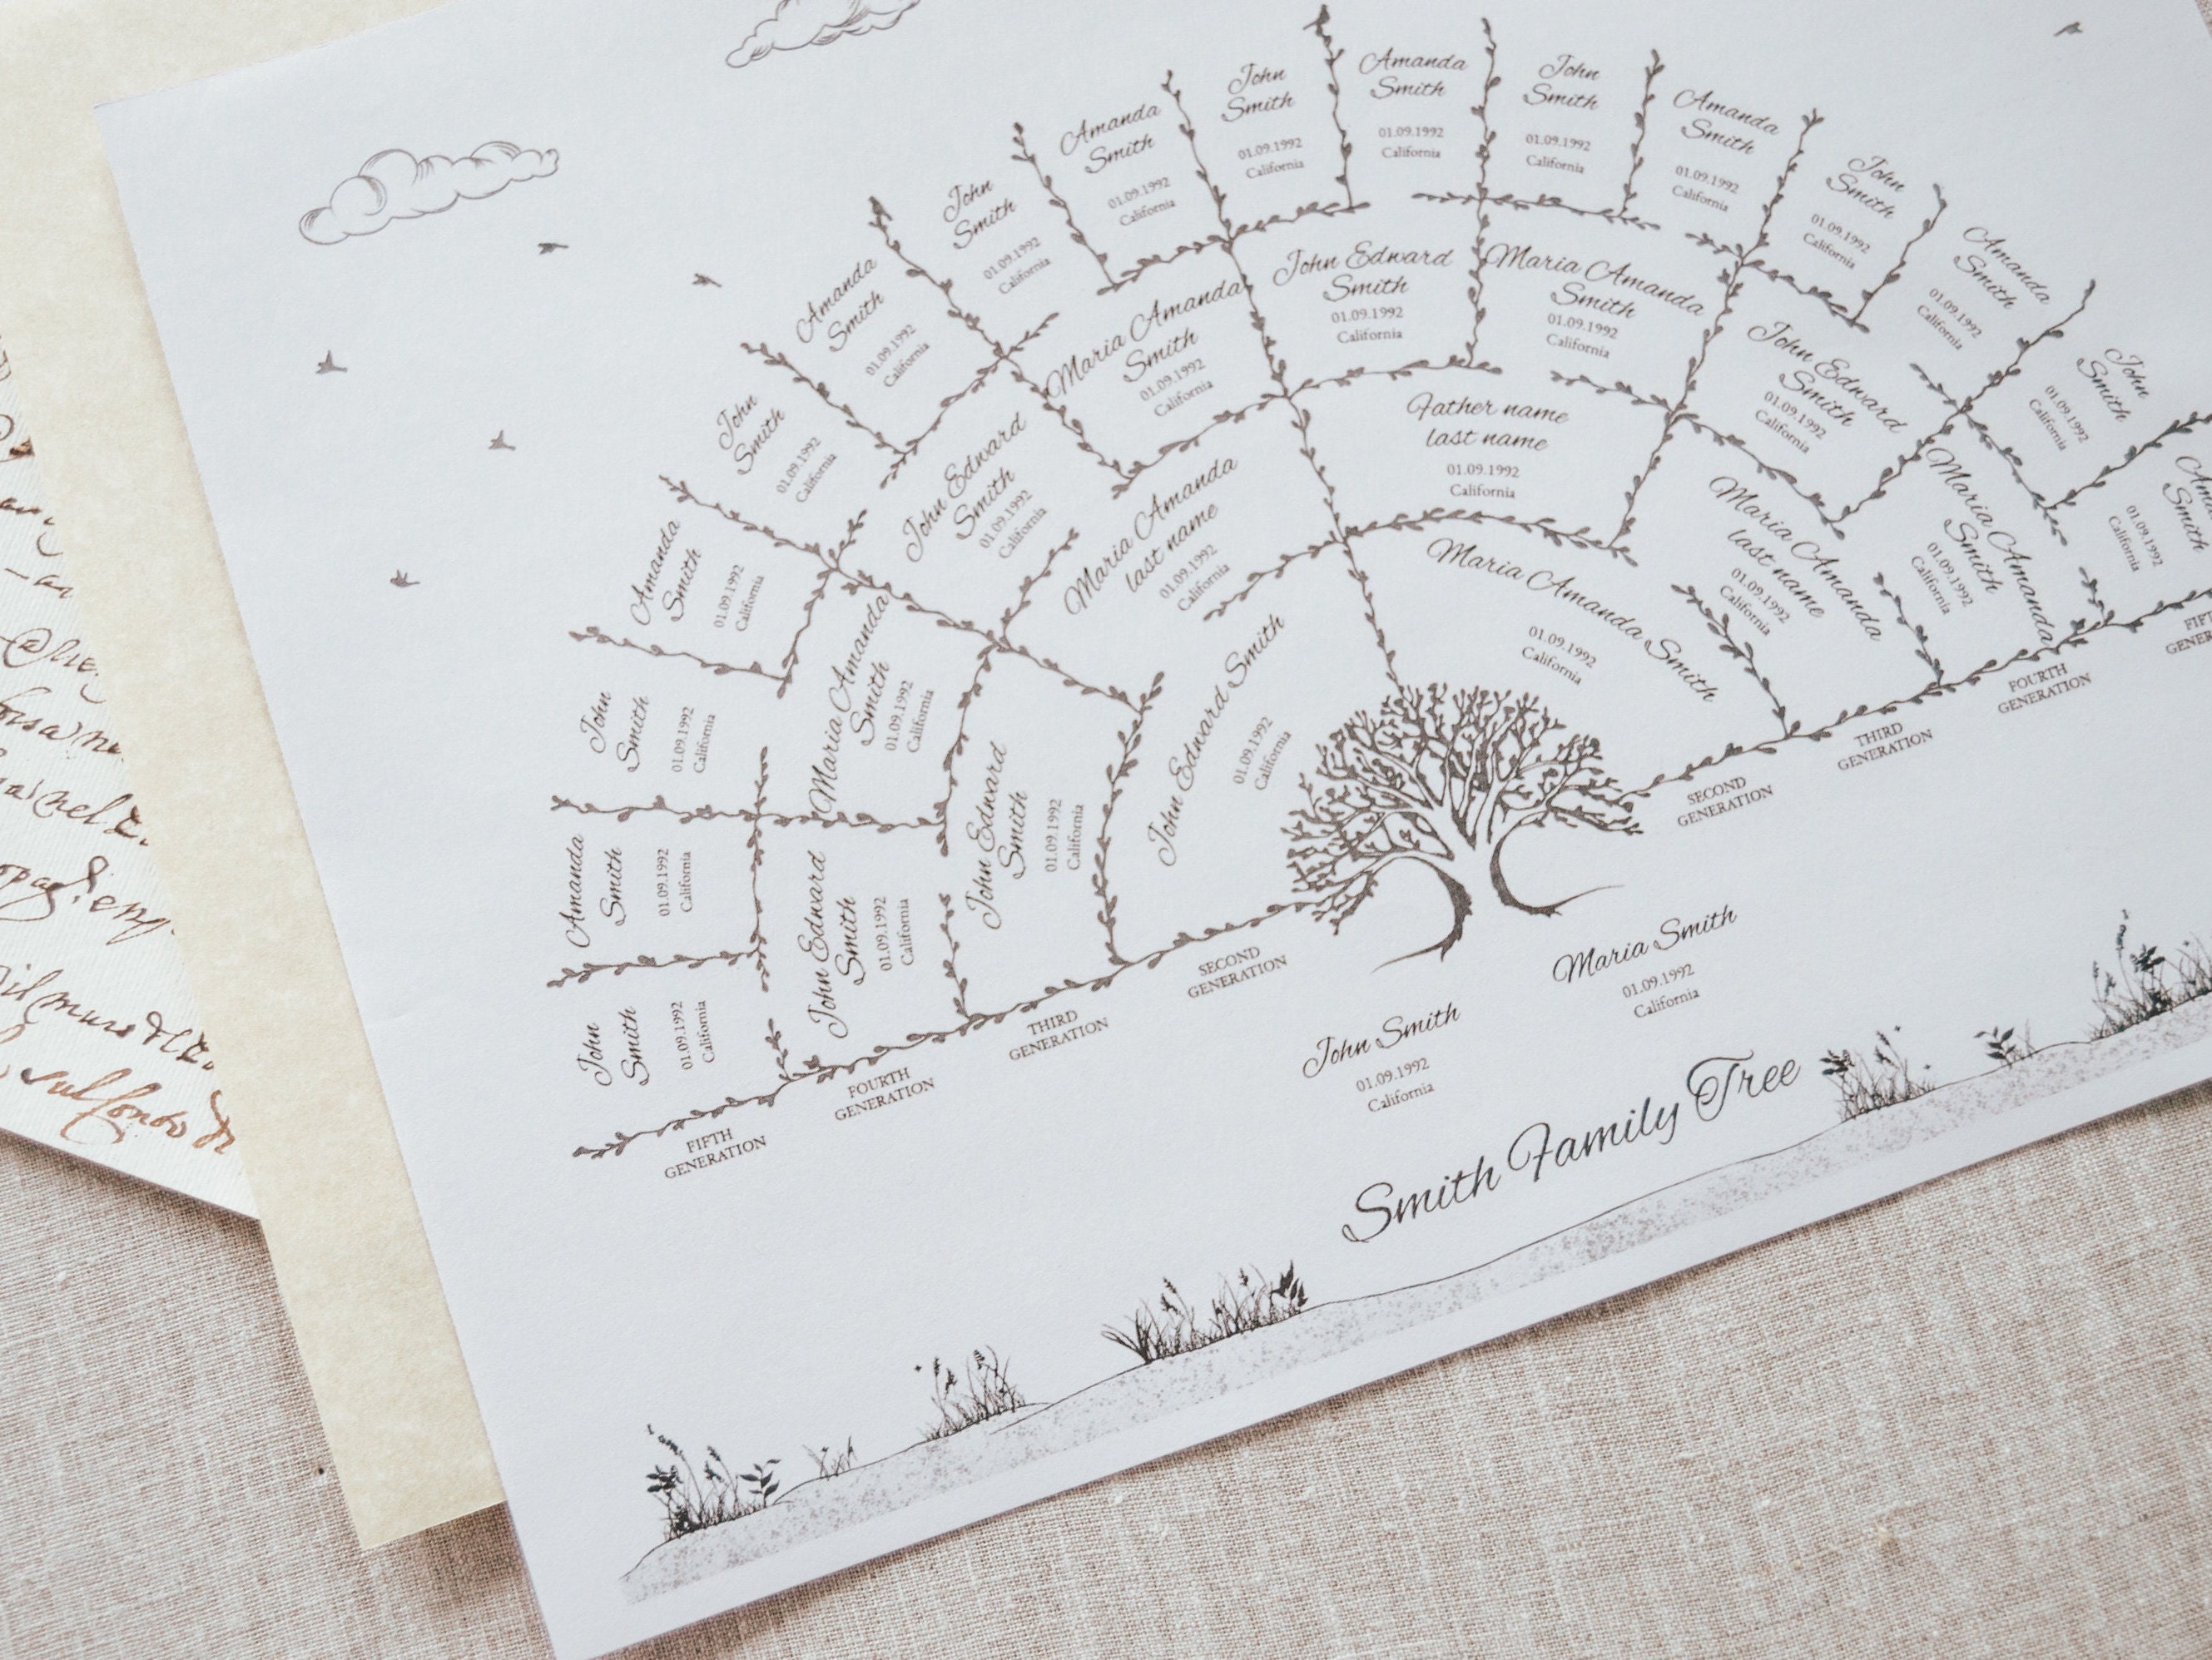 John
Smith
01.09.1992
California
Amanda
Smith
01.09.1992
California
John
Smith
01.09.1992
California
Amanda
Smith
01.09.1992
California
John
Smith
01.09.1992
California
Amanda
Smith
01.09.1992
California
John
Smith
01.09.1992
California
Amanda
Smith
01.09.1992
California
John
Smith
01.09.1992
California
Amanda
Smith
01.09.1992
California
John
Smith
01.09.1992
California
Amanda
Smith
01.09.1992
California
John
Smith
01.09.1992
California
Amanda
Smith
01.09.1992
California
John
Smith
01.09.1992
California
Smith
01.09.1992
California
John Edward
Smith
01.09.1992
California
Maria Amanda
Smith
01.09.1992
California
John Edward
Smith
01.09.1992
California
Maria Amanda
Smith
01.09.1992
California
John Edward
Smith
01.09.1992
California
Maria Amanda
Smith
01.09.1992
California
John Edward
Smith
01.09.1992
California
Maria Amanda
Smith
01.09.1992
California
John Edward
Smith
01.09.1992
California
Maria Amanda
last name
01.09.1992
California
Father name
last name
01.09.1992
California
Maria Amanda
last name
01.09.1992
California
John Edward Smith
01.09.1992
California
Maria Amanda Smith
01.09.1992
California
FIFTH
GENERATION
FOURTH
GENERATION
THIRD
GENERATION
SECOND
GENERATION
SECOND
GENERATION
THIRD
GENERATION
FOURTH
GENERATION
John Smith
01.09.1992
California
Maria Smith
01.09.1992
California
Smith Family Tree